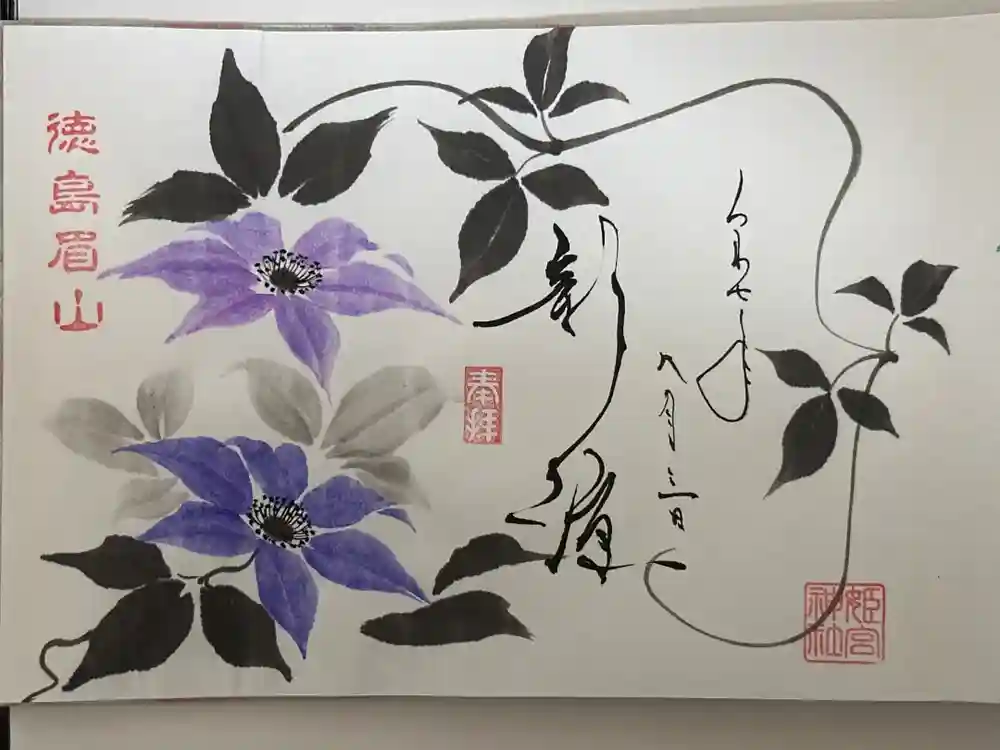 令和七年
八月三日
奉拝
徳島眉山
姫宮神社